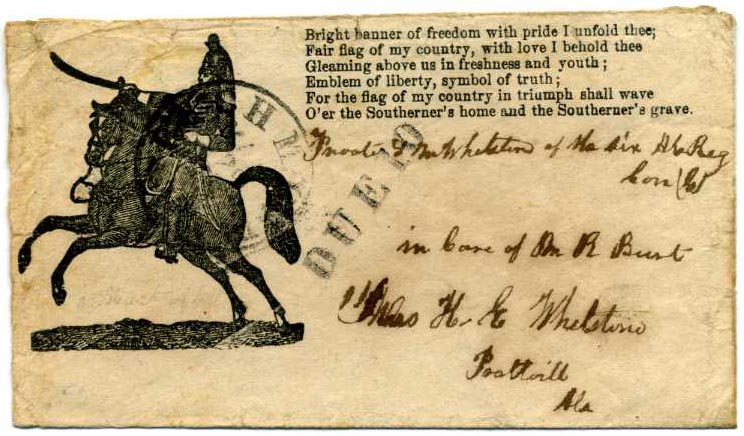 Bright banner of freedom with pride I unfold thee;
Fair flag of my country, with love I behold thee
Gleaming above us in freshness and youth;
Emblem of liberty, symbol of truth;
For the flag of my country in triumph shall wave
O'er the Southerner's home and the Southerner's grave.
Whelstone of the six Ala Reg
DUE 10
in Care of R Burt
H E Whelstone
Prattvill
Ala